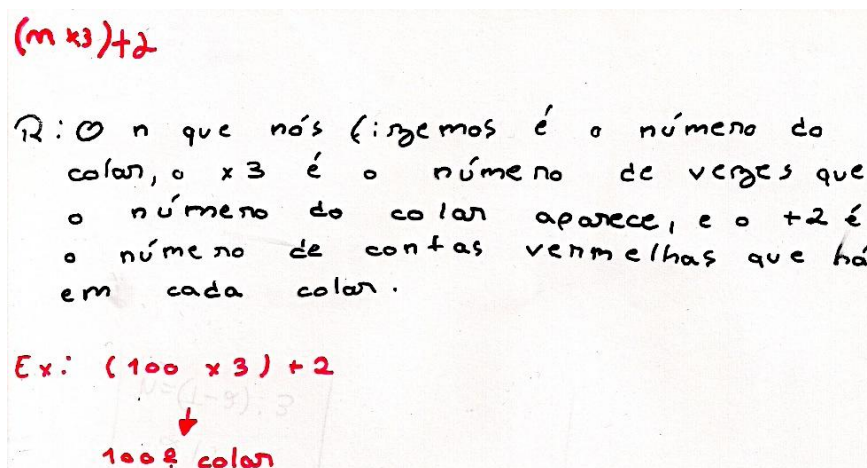 (n x3)+2
R: O n que nós fizemos é o número do
colar, o x 3 é o número de vezes que
o número do colar aparece, e o +2 é
o número de contas vermelhas que há
em cada colar.
Ex: (100 x 3) + 2
100º colar